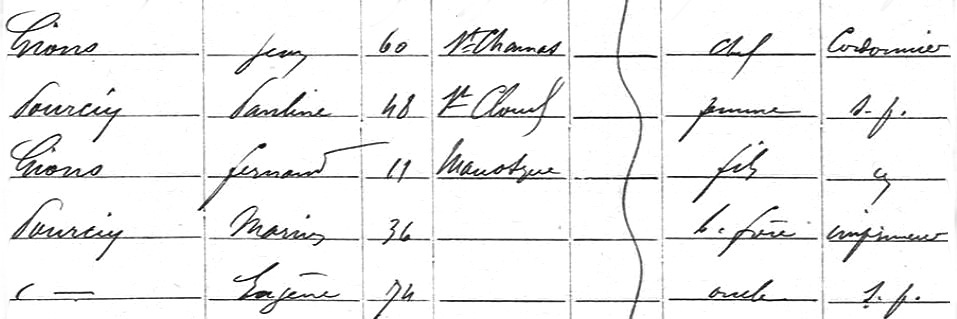 Lions Jean 60 St Chamas chef Cordonnier
Pourcin Pauline 48 St Cloud femme s. p.
Lions fernand 11 Manosque fils
Pourcin Marius 36 b. frère imprimeur
Eugène 74 oncle s. p.